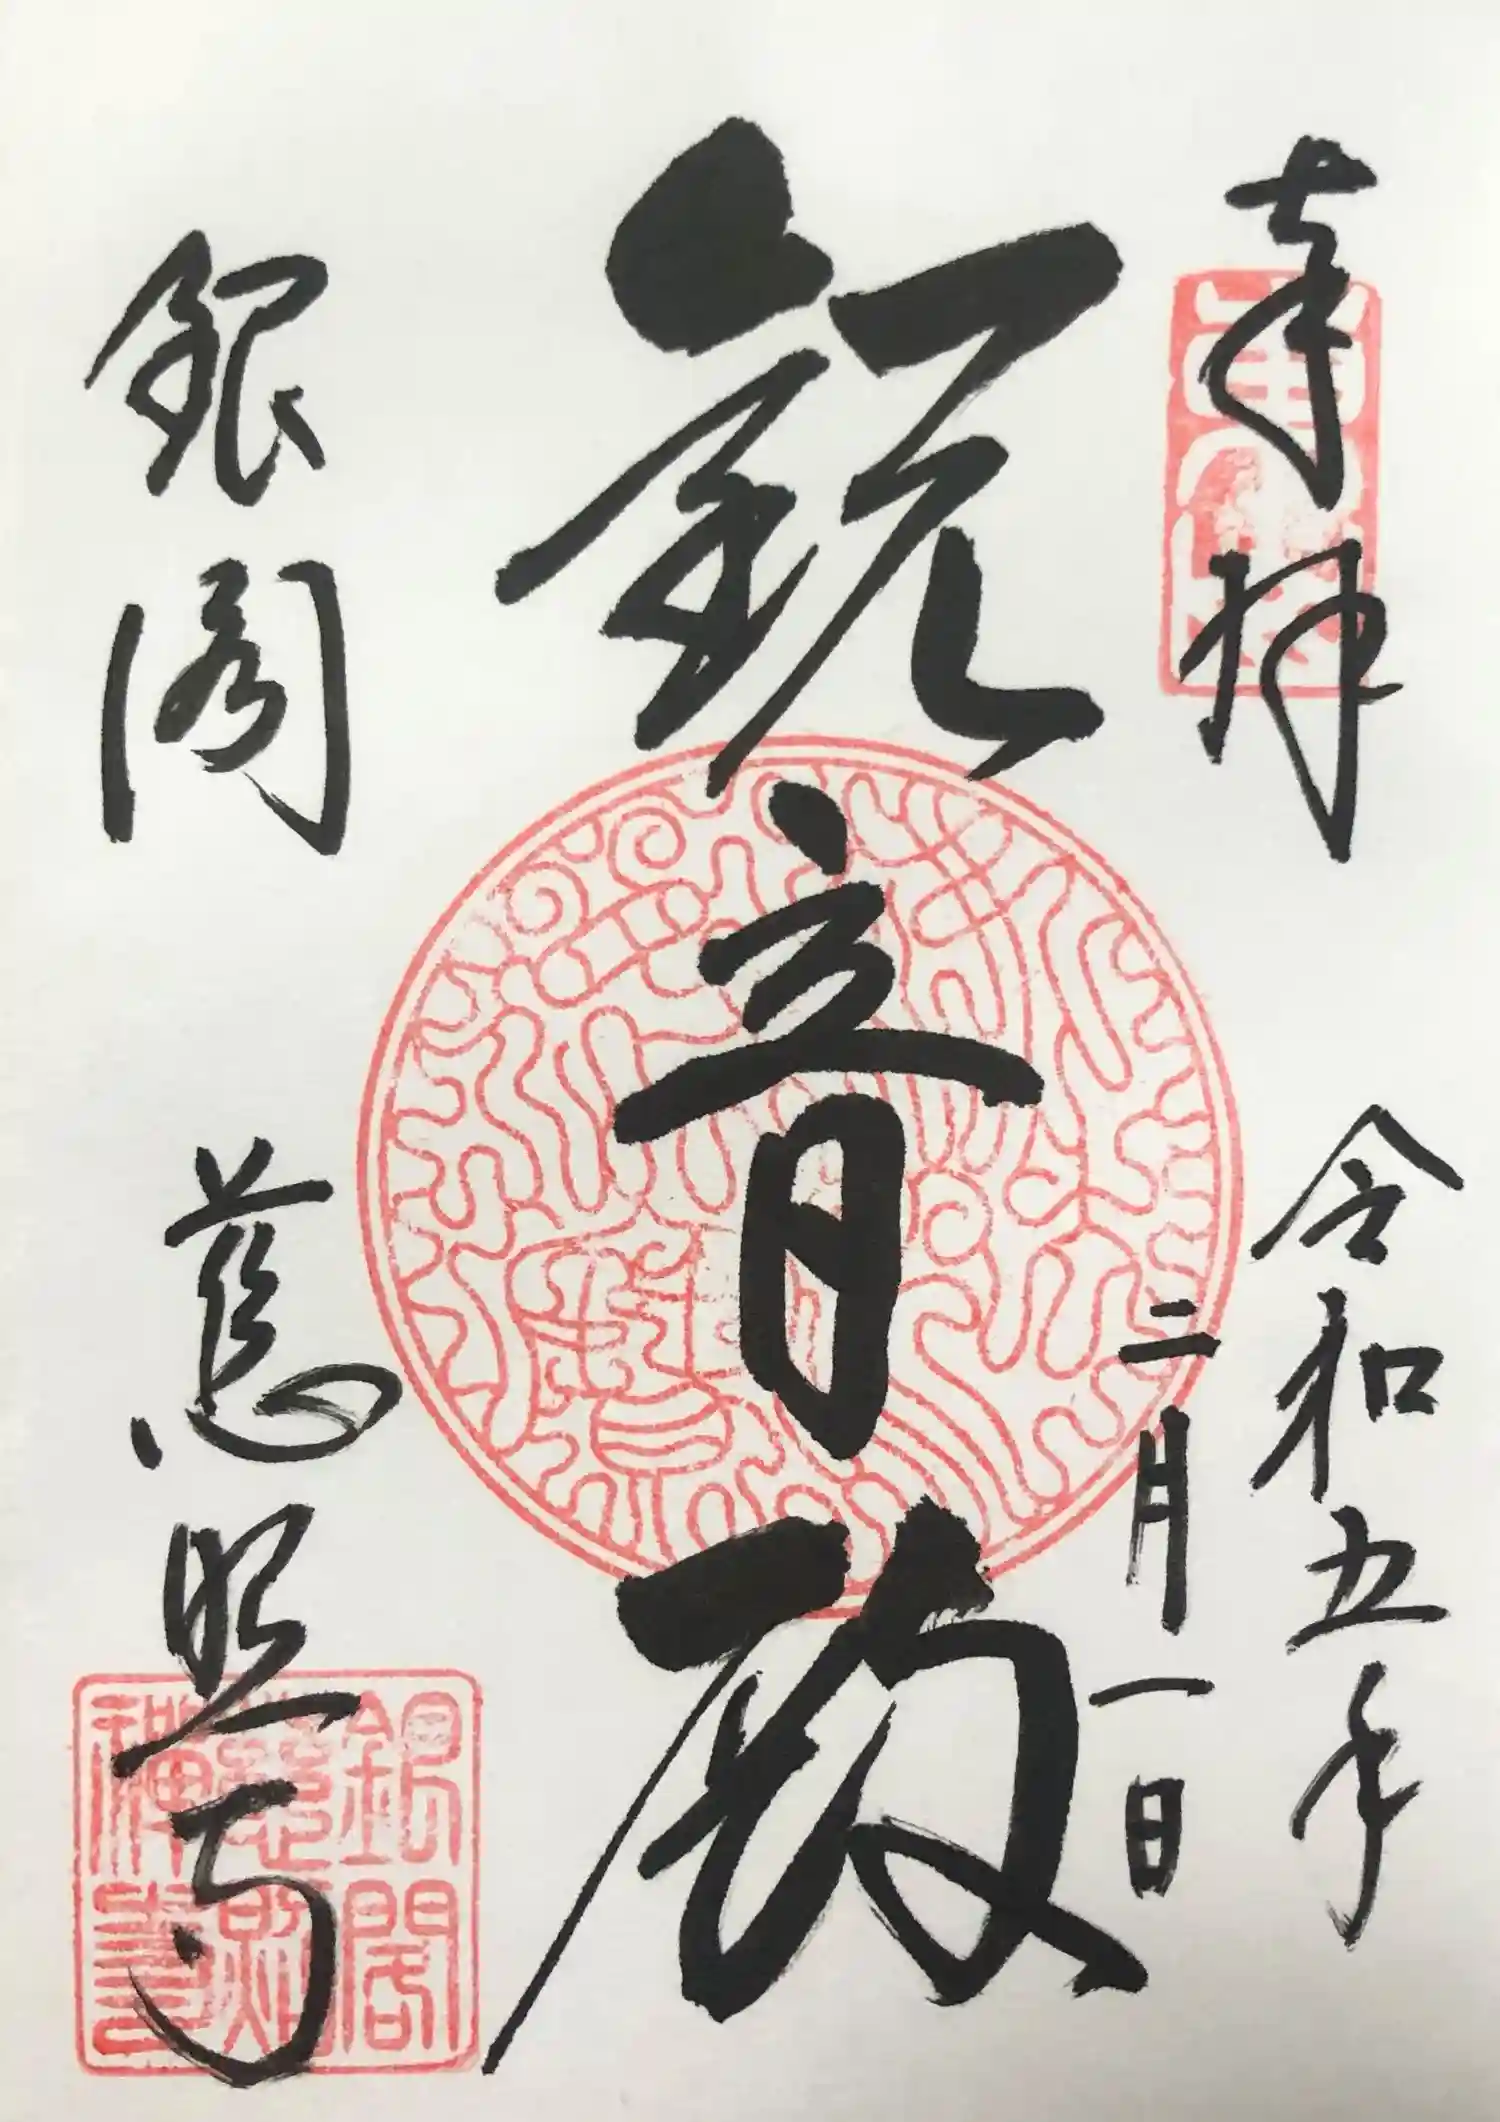 奉拝
令和五年
二月一日
観音殿
銀閣
慈照寺
銀閣
慈照
禅寺